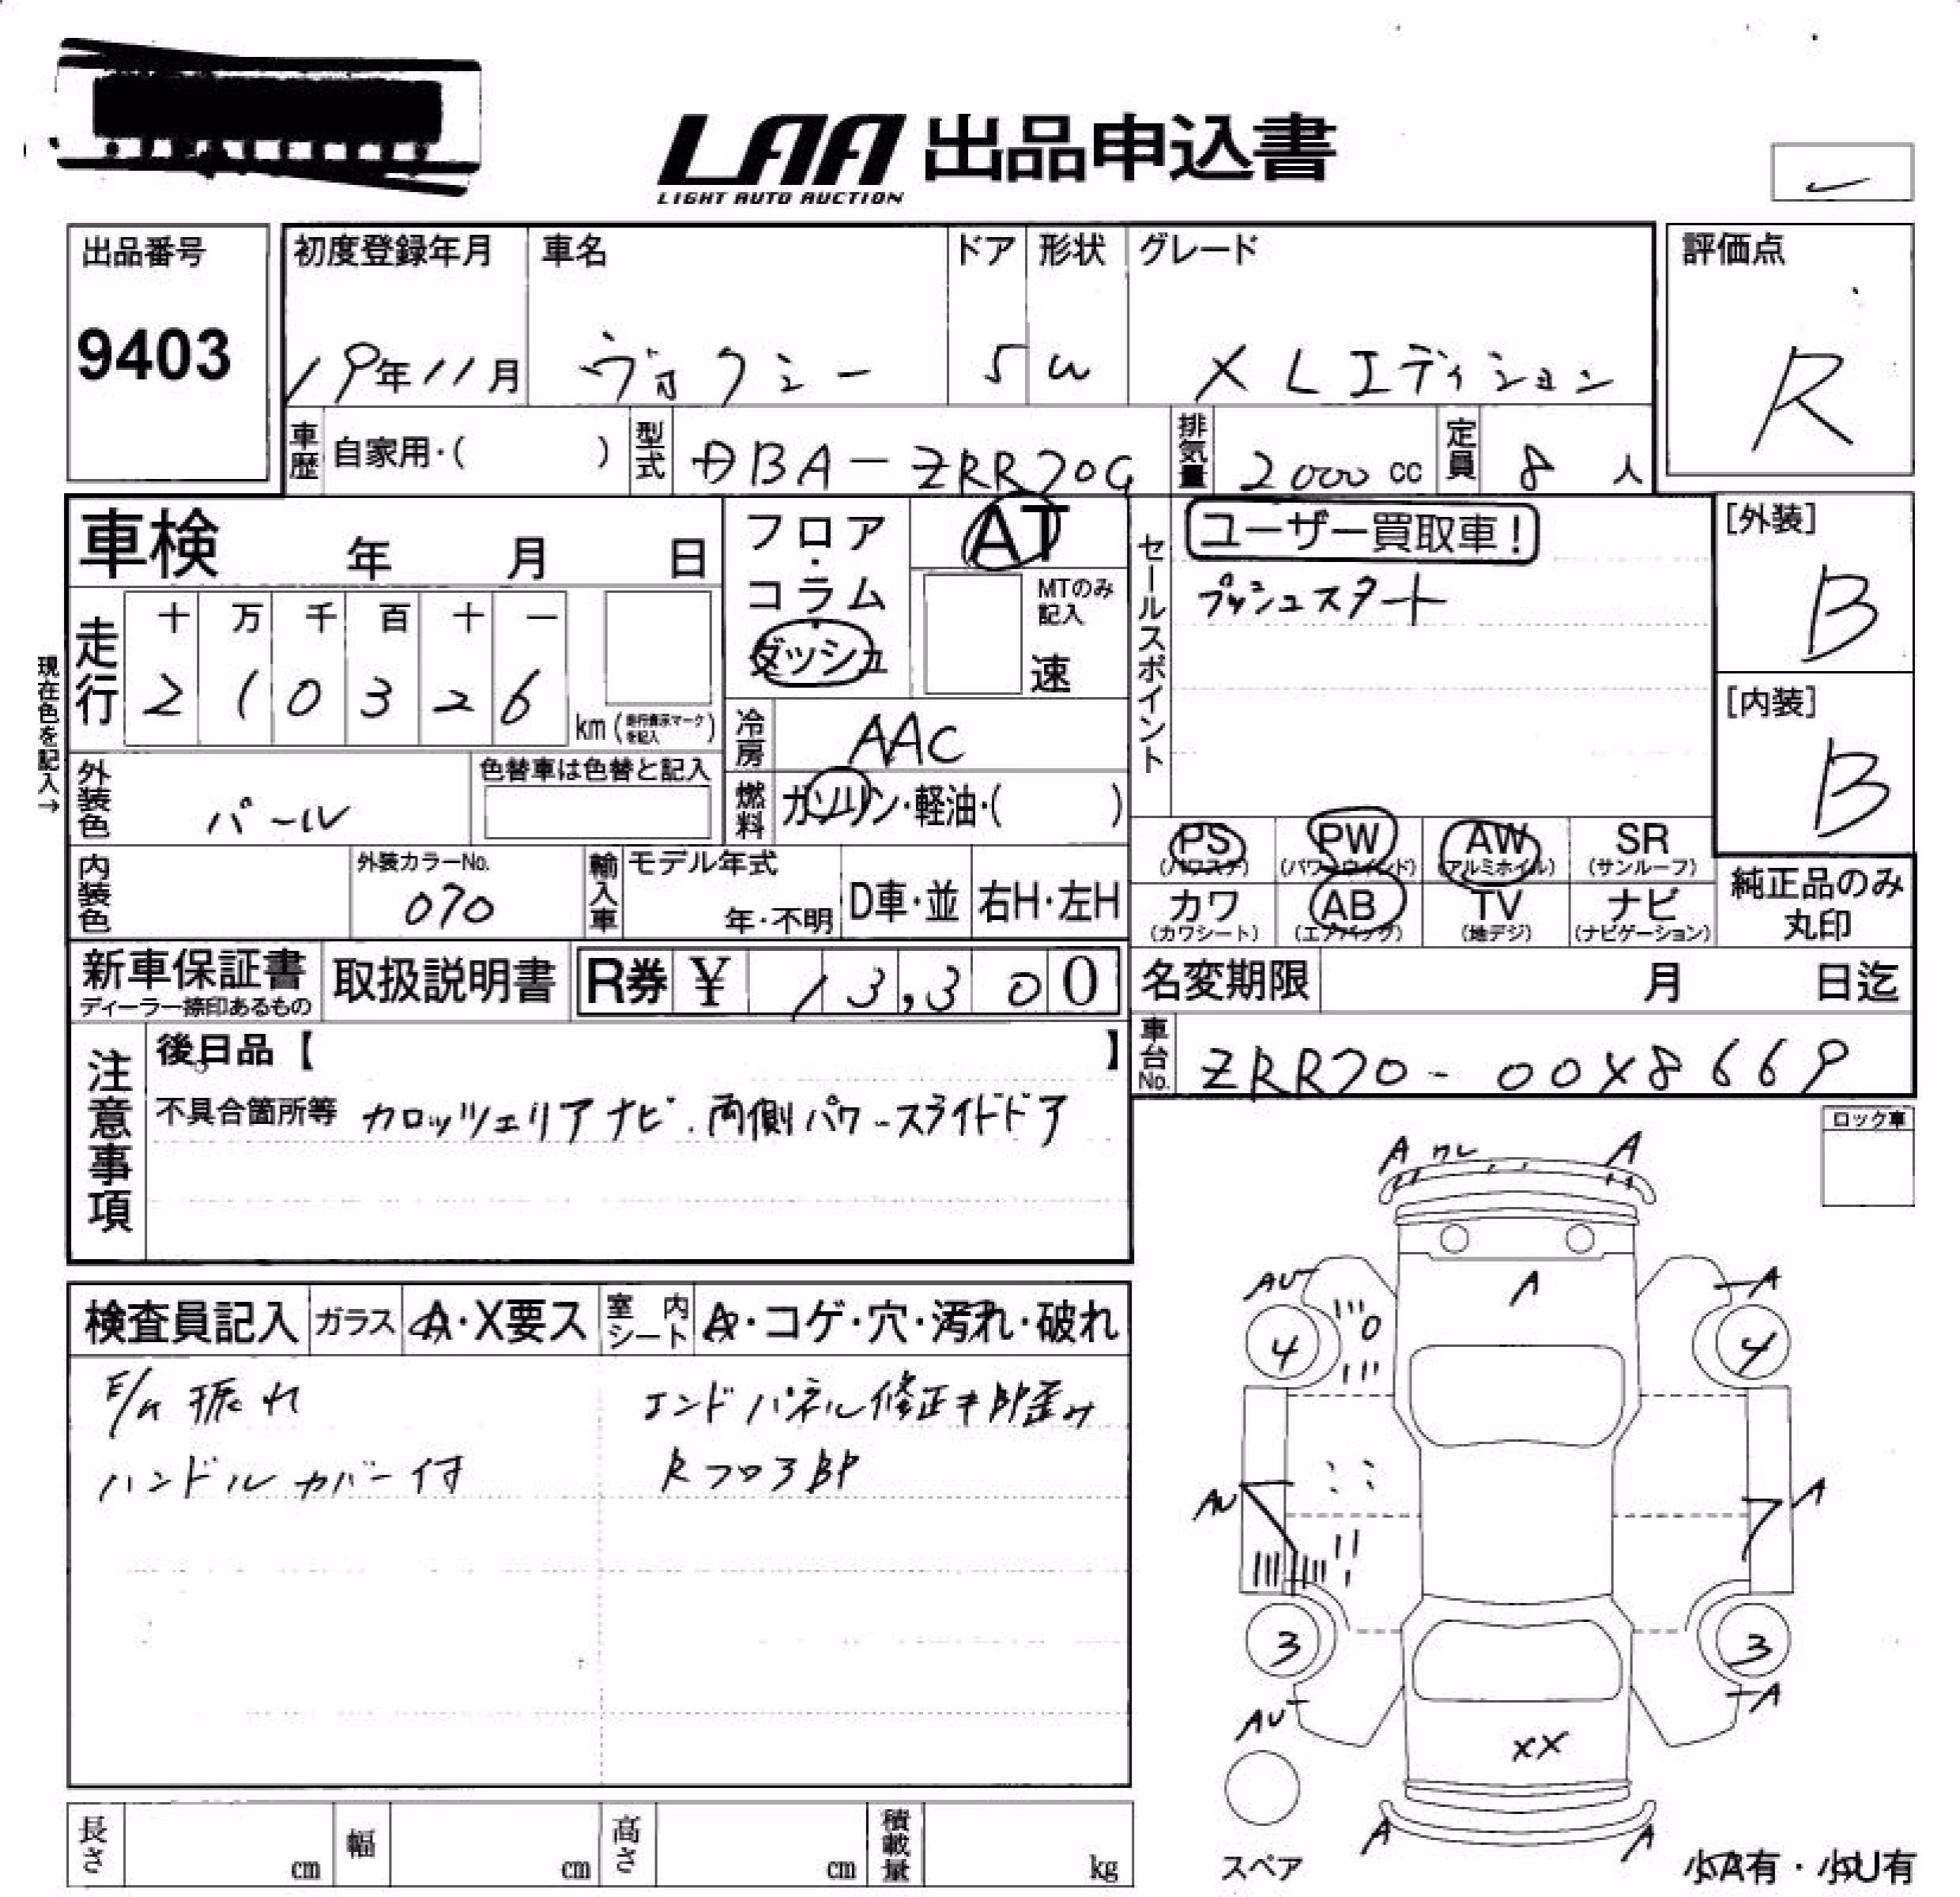 LAA 出品申込書
LIGHT AUTO AUCTION
出品番号
9403
初度登録年月
19年11月
車名
ヴォクシー
ドア
5
形状
W
グレード
X Lエディション
評価点
R
車歴
自家用・( )
型式
DBA-ZRR70G
排気量
2000 cc
定員
8 人
車検 年 月 日
走行
十 万 千 百 十 一
2 1 0 3 2 6
km (走行表示マークを記入)
現在色を記入→
外装色
パール
色替車は色替と記入
内装色
外装カラーNo.
070
フロア
・
コラム
・
ダッシュ
AT
MTのみ
記入
速
冷房
AAC
燃料
ガソリン・軽油・( )
輸入車
モデル年式
年・不明
D車・並
右H・左H
セールスポイント
ユーザー買取車!
プッシュスタート
[外装]
B
[内装]
B
PS
(パワステ)
PW
(パワーウインド)
AW
(アルミホイル)
SR
(サンルーフ)
カワ
(カワシート)
AB
(エアバック)
TV
(地デジ)
ナビ
(ナビゲーション)
純正品のみ
丸印
新車保証書
ディーラー捺印あるもの
取扱説明書
R券 ¥ 13,300
名変期限 月 日迄
車台No.
ZRR70-00X8669
注意事項
後日品【 】
不具合箇所等 カロッツェリアナビ.両側パワースライドドア
ロック車
検査員記入
ガラス
A・X要ス
室内シート
A・コゲ・穴・汚れ・破れ
E/G 振れ
ハンドルカバー付
エンドパネル修正キ BP歪み
RフロアBP
A ワレ A
AU A
A
4 4
AU A
3 3
AU A
XX
A A
スペア
小A有・小U有
長さ cm
幅 cm
高さ cm
積載量 kg